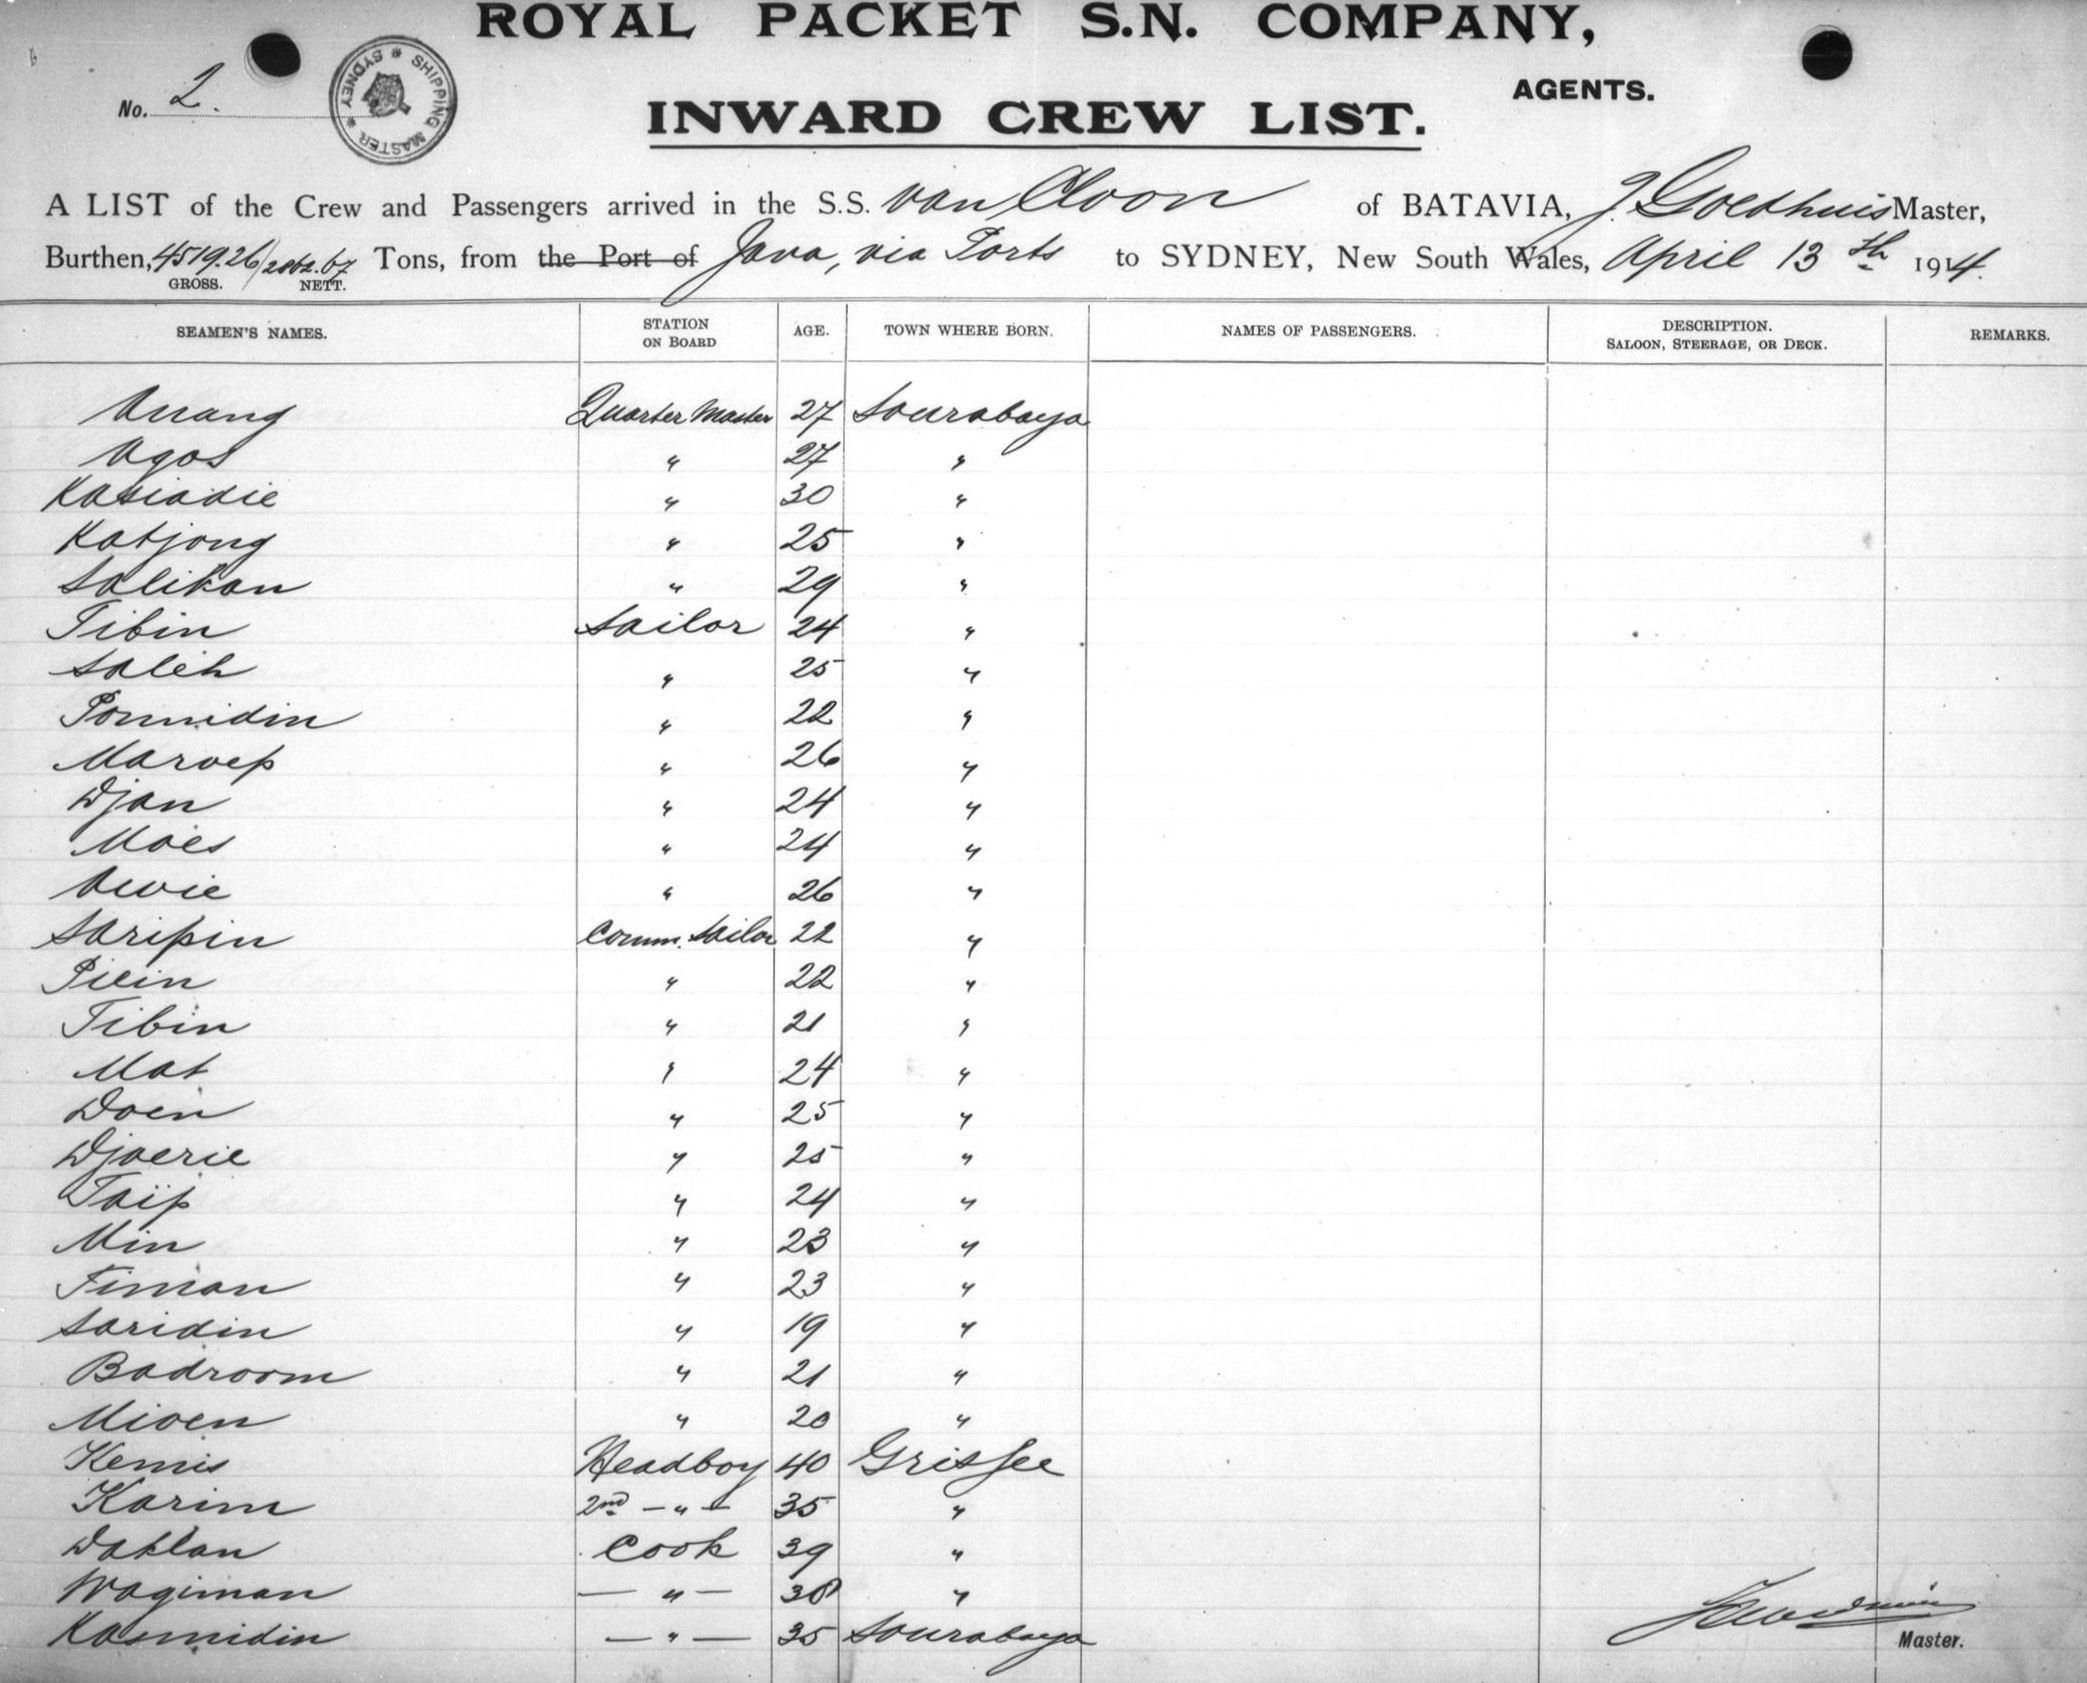 ROYAL PACKET S.N. COMPANY,
AGENTS.
No. 2.
* SHIPPING MASTER * SYDNEY
INWARD CREW LIST.
A LIST of the Crew and Passengers arrived in the S.S. van Cloon of BATAVIA, J. Goedhuis Master,
Burthen, 4519.26/2862.67 Tons, from the Port of Java, via Ports to SYDNEY, New South Wales, April 13th 1914.
GROSS. NETT.
SEAMEN'S NAMES. STATION ON BOARD AGE. TOWN WHERE BORN. NAMES OF PASSENGERS. DESCRIPTION. SALOON, STEERAGE, OR DECK. REMARKS.
Quarter Master 27 Sourabaya
Agos " 27 "
Kasiadie " 30 "
Katjong " 25 "
Salikan " 29 "
Tibin Sailor 24 "
Saleh " 25 "
Ponnidin " 22 "
Maroep " 26 "
Djan " 24 "
Moes " 24 "
" 26 "
Saripin Comm. Sailor 22 "
" 22 "
Tibin " 21 "
Mat " 24 "
Doen " 25 "
Djoerie " 25 "
Taïp " 24 "
Min " 23 "
Timan " 23 "
Saridin " 19 "
Badroom " 21 "
Mioen " 20 "
Kemis Headboy 40 Grissee
Karim 2nd — " — 35 "
Dahlan Cook 39 "
Wagiman — " — 38 "
Kasmidin — " — 35 Sourabaya
Master.